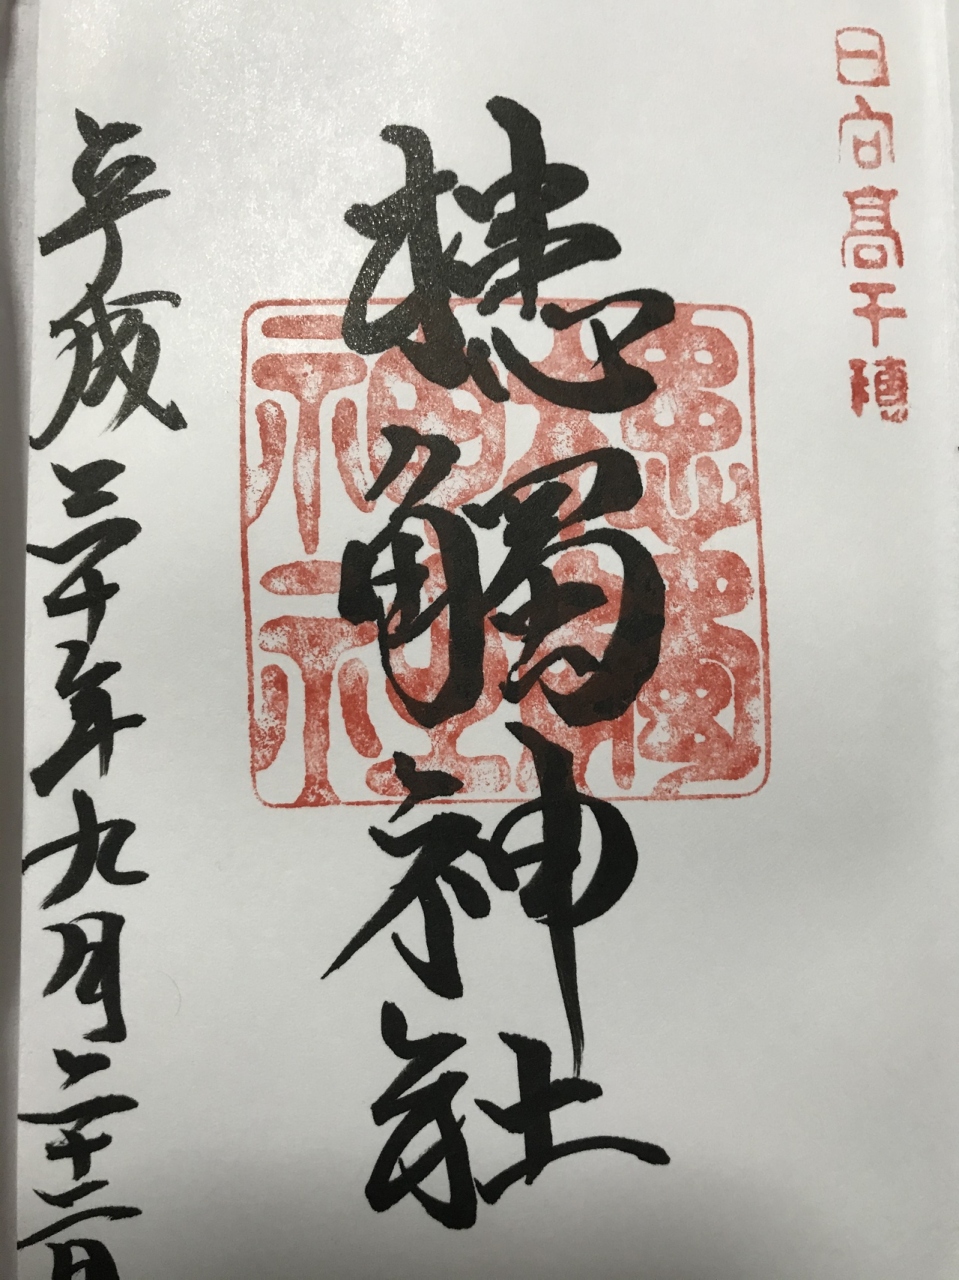 日向高千穗
槵觸神社
平成三十年九月二十二日
神社